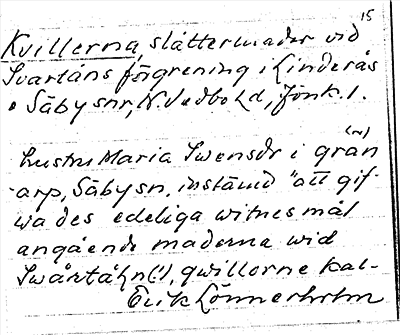 15
Kvillerna, slåttermader vid
Svartåns förgrening i Linderås
o Säby snr, N. Vedbo hd, Jönk. l.
hustru Maria Swensdr i grån(n)
arp, Säby sn, instämd "att gif-
wa des edeliga witnesmål
angående maderna wid
Swårtåhn(!), qwillorne kal-
Erik Lönnerholm